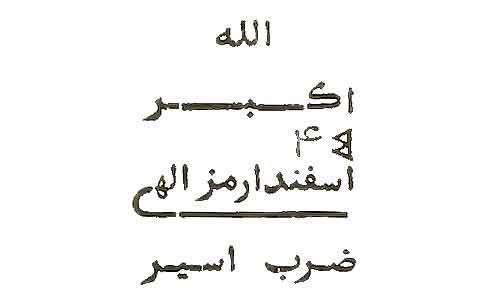 الله
اکبر
۴۵
اسفندارمز الهی
ضرب اسیر